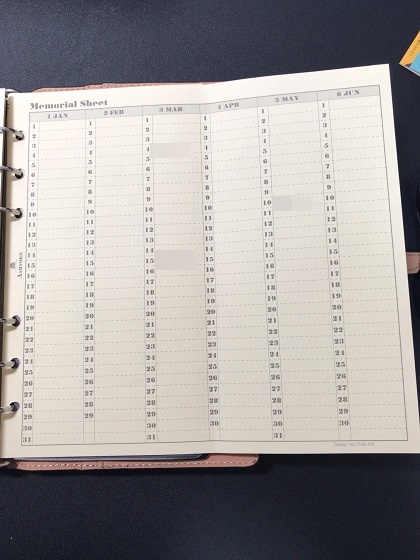 Memorial Sheet
1 JAN 2 FEB 3 MAR 4 APR 5 MAY 6 JUN
1 1 1 1 1 1
2 2 2 2 2 2
3 3 3 3 3 3
4 4 4 4 4 4
5 5 5 5 5 5
6 6 6 6 6 6
7 7 7 7 7 7
8 8 8 8 8 8
9 9 9 9 9 9
10 10 10 10 10 10
11 11 11 11 11 11
12 12 12 12 12 12
13 13 13 13 13 13
14 14 14 14 14 14
15 15 15 15 15 15
16 16 16 16 16 16
17 17 17 17 17 17
18 18 18 18 18 18
19 19 19 19 19 19
20 20 20 20 20 20
21 21 21 21 21 21
22 22 22 22 22 22
23 23 23 23 23 23
24 24 24 24 24 24
25 25 25 25 25 25
26 26 26 26 26 26
27 27 27 27 27 27
28 28 28 28 28 28
29 29 29 29 29 29
30 30 30 30 30
31 31 31
Ashford
Design No.